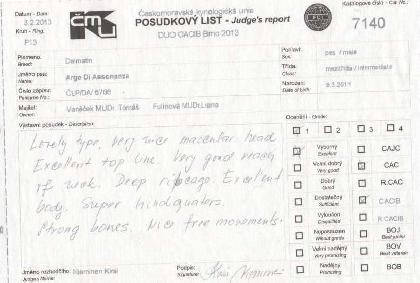 Datum - Day:
3.2.2013
Kruh - Ring:
P13
ČMKU
Českomoravská kynologická unie
POSUDKOVÝ LIST - Judge's report
DUO CACIB Brno 2013
FCI
Katalogové číslo - Cat. No.:
7140
Plemeno:
Breed:
Dalmatin
Pohlaví:
Sex:
pes / male
Jméno psa:
Name:
Arge Di Assonanza
Třída:
Class:
mezitřída / intermediate
Číslo zápisu:
Pedigree No.:
ČLP/DA/ 6706
Narozen:
Date of birth:
9.3.2011
Majitel:
Owner:
Vaněček MUDr. Tomáš
Fulínová MUDr. Liana
Výstavní posudek - Description:
Ocenění - Grade:
Lovely type, very nice masculine head.
Excellent top line. Very good reach
of neck. Deep ribcage. Excellent
body. Super hindquaters.
Strong bones. Nice free movements.
1 2 3 4
Výborný
Excellent
CAJC
Velmi dobrý
Very good
CAC
Dobrý
Good
R.CAC
Dostatečný
Sufficient
CACIB
Vyloučen
R.CACIB
Neposouzen
Without grade
BOJ
Velmi nadějný
Very promising
BOV
Best veteran
Nadějný
Promising
BOB
Jméno rozhodčího
Judges Name
Nieminen Kirsi
Podpis:
Signature: